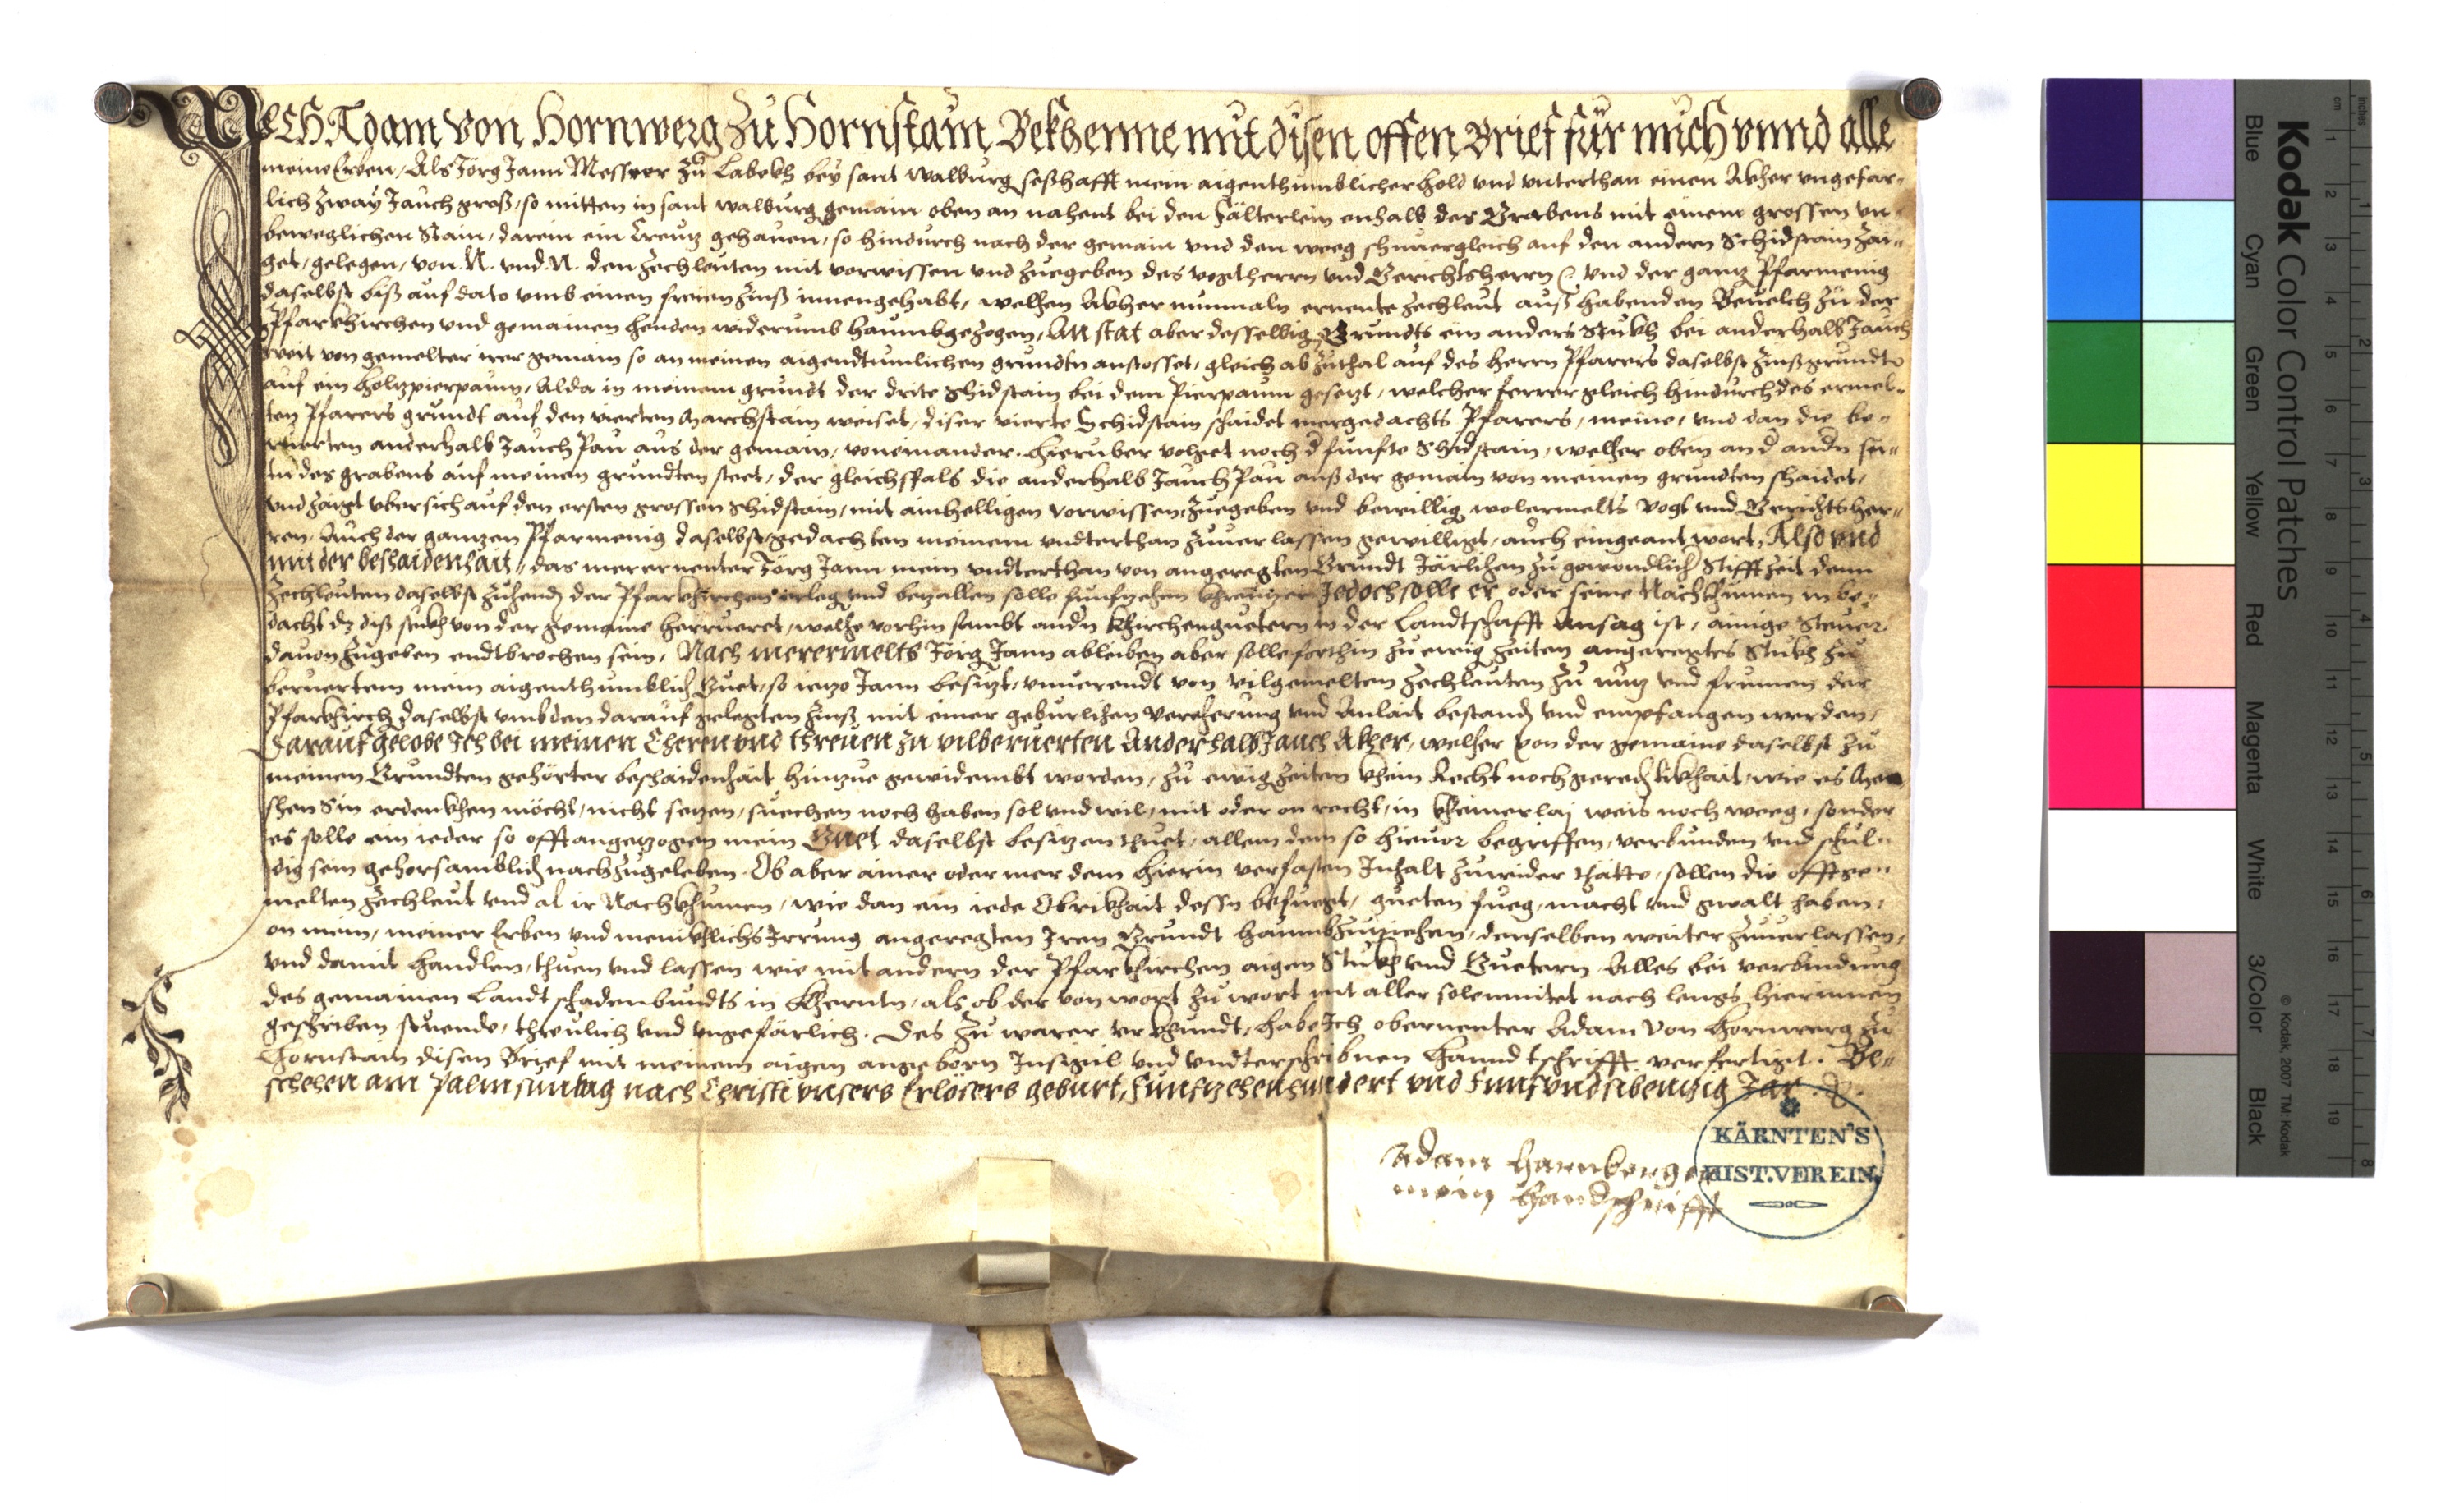 ICH Adam von Hornwerg Zu Hornstain Bekhenne mit disen offen Brief für mich vnnd alle
meine Erben, Als Jörg Jann Messner zu Labekh bey sant Walburg seßhafft mein aigenthumblicher hold vnd vnterthan einen Akher vngefar-
lich zway Jauch groß, so mitten in sant walburg gemain oben an nahent bei den enhalb des Grabens mit einem grossen vn-
beweglichen Stain, darein ein Creutz gehauen, so hindurch nach der gemain vnd den weeg schnuergleich auf den andern Schidstain zai-
get, gelegen, von N. vnd N. den zechleuten mit vorwissen vnd zuegeben des vogtherrn vnd Gerichtsherrn vnd der gantz Pfarmenig
daselbst biß auf dato vmb einen freien zinß innengehabt, welhen Akher nunmaln ernente zechleut auß habenden Beuelch zu der
Pfarkhirchen vnd gemainen henden widerumb haimbgezogen, An stat aber desselbig Grundts ein anders Stukh bei anderhalb Jauch
weit von gemelter irer gemain so an meinen aigendtumlichen grundtn anstosset, gleich ab zuthal auf des herrn Pfarers daselbst zinßgrundt
auf ein holtzpierpaum, Alda in meinem grundt der drite Schidstain bei dem Pierpaum gesetzt, welcher ferrer gleich hindurch des ermel-
ten Pfarers grundt auf den vierten Marchstain weiset, diser vierte Schidstain schaidet mergedachts Pfarers, meine, vnd dan die be-
ruerten anderhalb Jauch Pau aus der gemain, voneinander. hieruber volget noch d funfte Schidstain, welher oben an d andn sei-
tn des grabens auf meinen grundten steet, der gleichsfals die anderhalb Jauch Pau auß der gemain von meinen grundten schaidet,
vnd zaigt vbersich auf den ersten grossen Schidstain, mit ainhelligen vorwissen, zuegeben vnd bewillig wolermelts Vogt vnd Gerichtsher-
ren, Auch der gantzen Pfarmenig daselbst, gedachten meinem vndterthan zuuerlassen gewilligt, auch eingeantwort, Also vnd
mit der beschaidenhait, das merernenter Jörg Jann mein vndterthan von angeregten Grundt Järlichen zu gewondlich Stifftzeit denn
zechleuten daselbst zuhendn der Pfarkhirchen erleg vnd betzallen solle funfzehen khreutzer Jedoch solle er oder seine Nachkhumen in be-
dacht dz diß stukh von der gemaine herrueret, welhe vorhin sambt andn khirchenguetern in der Landtschafft Ansag ist, ainige Steuer
dauon zugeben endtbrochen sein, Nach merermelts Jörg Jann ableiben aber solle forthin zu ewig zeiten angeregtes Stukh zu
beruertem mein aigenthumblich Guet, so ietzo Jann besitzt, vnuerendt von vilgemelten zechleuten zu nutz vnd frumen der
Pfarkhirch daselbst vmb den darauf gelegten zinß mit einer geburlichen vererung vnd Anlait bestandn vnd empfangen werden,
Darauf gelobe Ich bei meinen Eheren vnd threuen zu vilberuerten Anderhalb Jauch Akher, welher von der gemaine daselbst zu
meinen Grundten gehörter beschaidenhait hintzue gewidembt worden, zu ewig zeiten khein Recht noch gerechtikhait, wie es Men
schen Sin erdenkhen möcht, nicht setzen, suechen noch haben sol vnd wil, mit oder on recht, in kheinerlaj weis noch weeg, sonder
es solle ein ieder so offt angetzogen mein Guet daselbst besitzen thuet, allem dem so hieuor begriffen, verbunden vnd schul-
dig sein gehorsamblich nachzugeleben. Ob aber ainer oder mer dem hierin verfasten Inhalt zuwider thätte, sollen die offtge-
melten zechleut vnd al ir Nachkhumen, wie dan ein iede Obrikhait dessn befuegt, gueten fueg, macht vnd gwalt haben,
on mein, meiner Erben vnd menikhlichs Irrung angeregten Iren Grundt haimbzuziehen, denselben weiter zuuerlassen,
vnd damit handlen, thuen vnd lassen wie mit andern der Pfarkhirchen aigen Stukh vnd Guetern. Alles bei verbindung
des gemainen Landtschadenbundts in Khernten, als ob der von wort zu wort mit aller solennitet nach lengs hierinnen
geschriben stuende, threulich vnd vngefärlich. Des zu warer vrkhundt, habe Ich obernenter Adam von Hornwerg zu
Hornstain disen Brief mit meinem aigen angeborn Insigil vnd vndterschribnen hanndtschrifft verfertigt. Ge-
schehen am Palmsuntag nach Christi vnsers Erlösers geburt, Funffzehenhundert vnd Funfvndsibentzig Jar.
Adam harnberger
mein handschrifft
KÄRNTEN'S
HIST.VEREIN
Kodak Color Control Patches
Blue Cyan Green Yellow Red Magenta White 3/Color Black
© Kodak, 2007 TM: Kodak
cm 1 2 3 4 5 6 7 8 9 10 11 12 13 14 15 16 17 18 19
inches 1 2 3 4 5 6 7 8